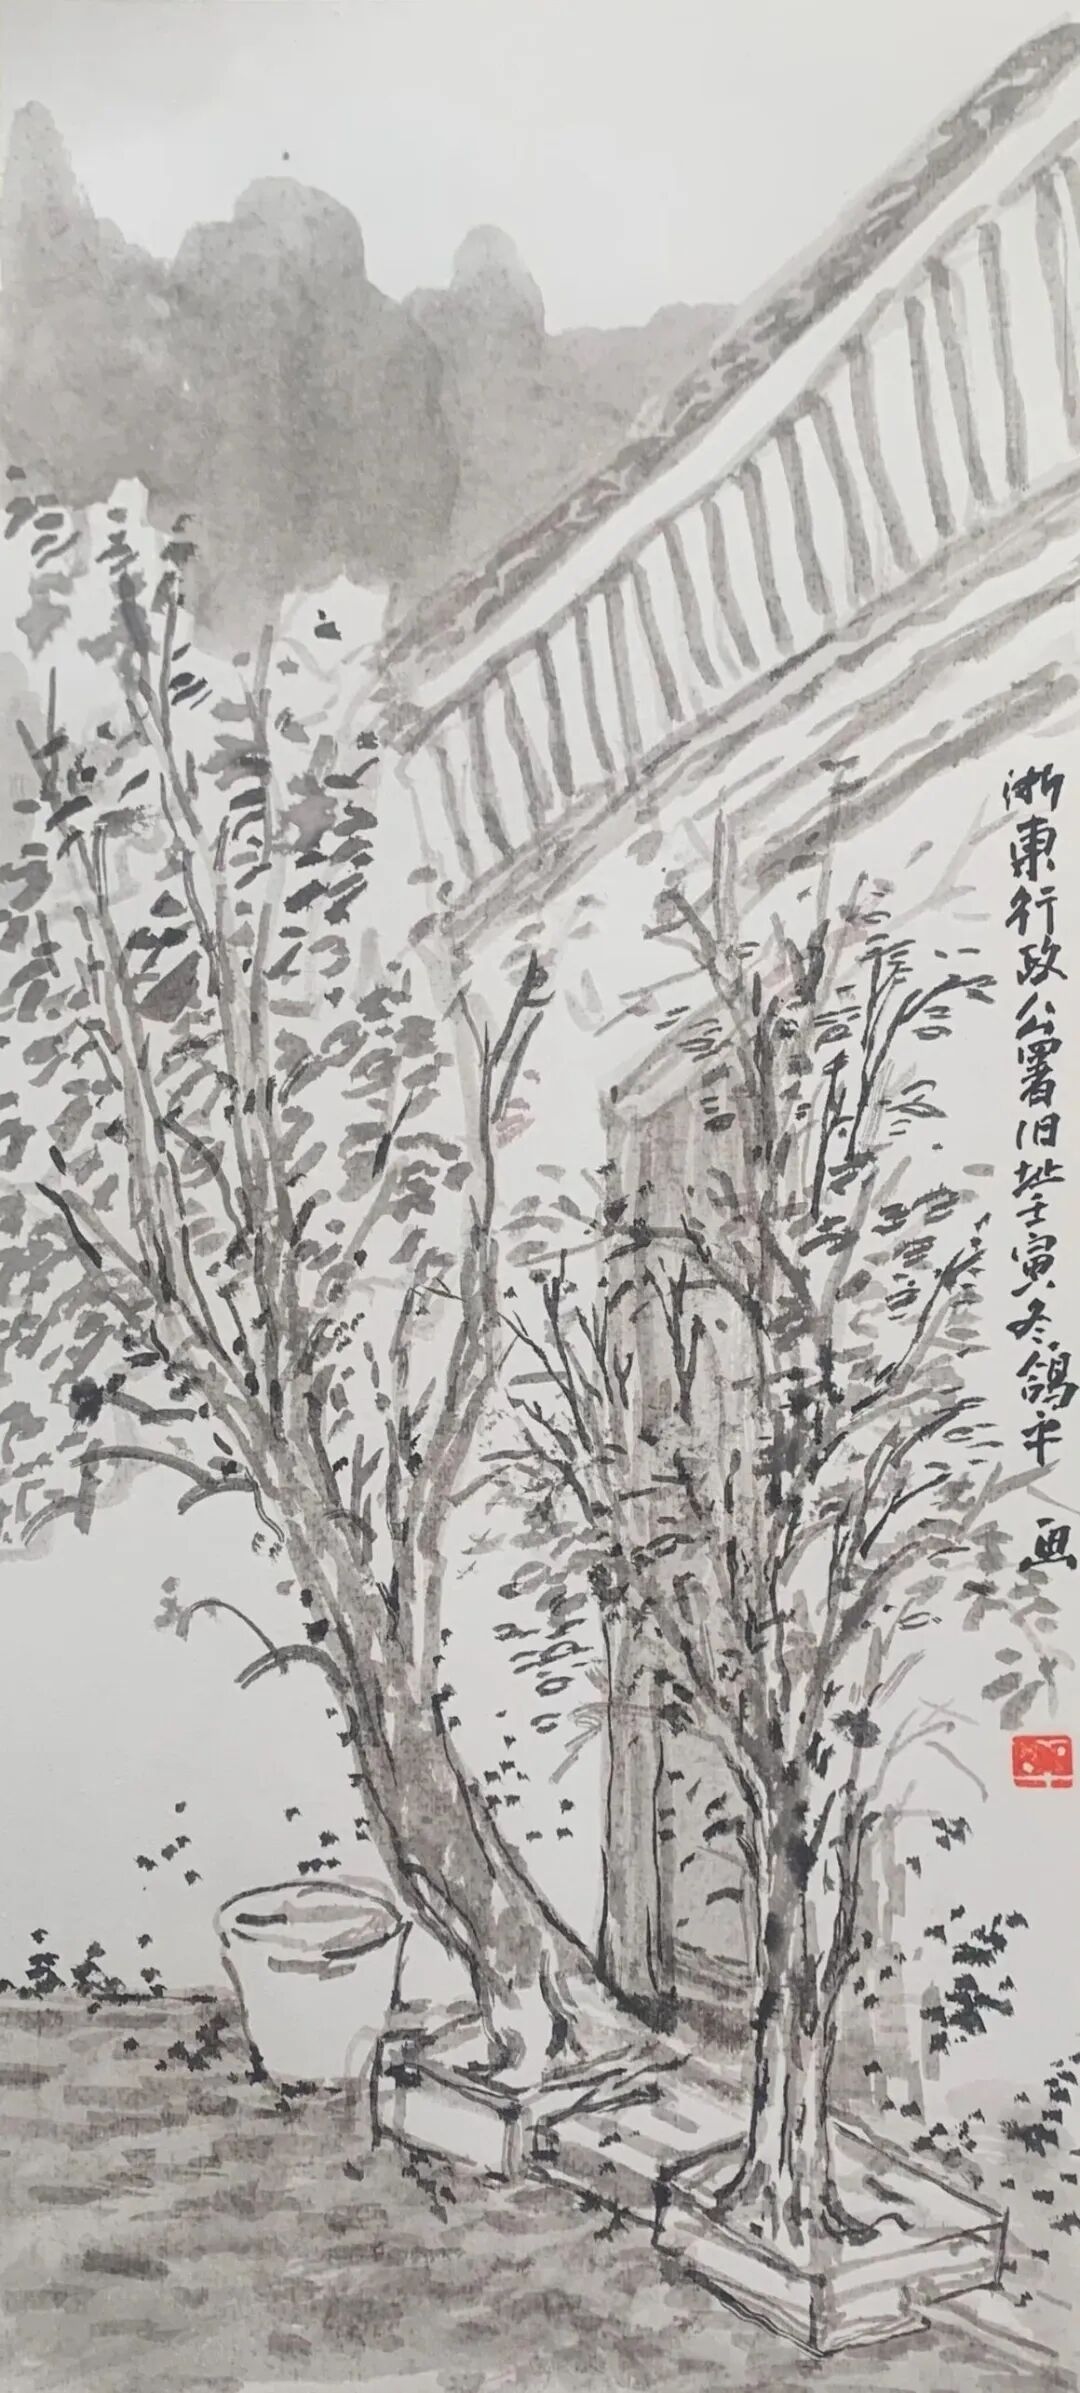 浙东行政公署旧址壬寅冬鸽平 画